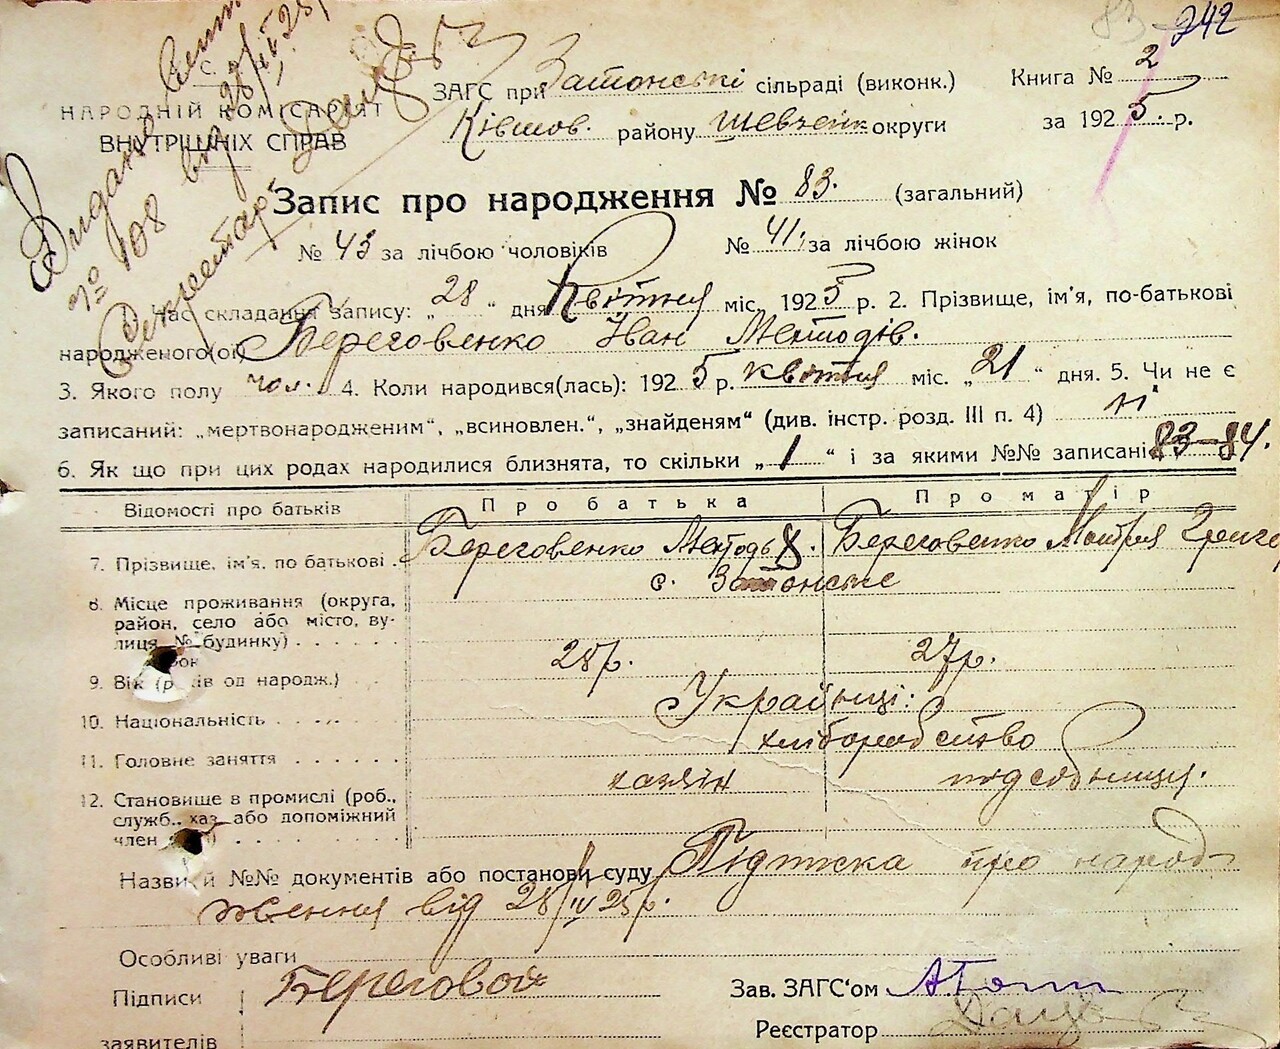 83 242
С.
НАРОДНІЙ КОМІСАРІЯТ
ВНУТРІШНІХ СПРАВ
Видано
№ 108 від 28/IV 25
Секретар
ЗАГС при Затонські сільраді (виконк.)
району Шевченк округи
Книга № 2
за 1925 р.
Запис про народження № 83. (загальний)
№ 43 за лічбою чоловіків № 41. за лічбою жінок
1. Час складання запису: „28“ дня Квітня міс. 1925 р. 2. Прізвище, ім'я, по-батькові
народженого(ої) Береговенко Іван Методів.
3. Якого полу чол. 4. Коли народився(лась): 1925 р. квітня міс. „21“ дня. 5. Чи не є
записаний: „мертвонародженим“, „всиновлен.“, „знайденям“ (див. інстр. розд. III п. 4) ні
6. Як що при цих родах народилися близнята, то скільки „1“ і за якими №№ записані 83–84.
Відомості про батьків Про батька Про матір
7. Прізвище, ім'я, по батькові Береговенко Методь Х. Береговенко Мотря
8. Місце проживання (округа, район, село або місто, вулиця, № будинку) с. Затонське
9. Вік (років од народж.) 25р. 27р.
10. Національність Українці:
11. Головне заняття хліборобство
12. Становище в промислі (роб., служб., хаз. або допоміжний член хазяїн подсобниця.
Назви й №№ документів або постанови суду Підписка про народ-
ження від 28/IV 25 р.
Особливі уваги
Підписи Береговой
заявителів
Зав. ЗАГС'ом
Реєстратор